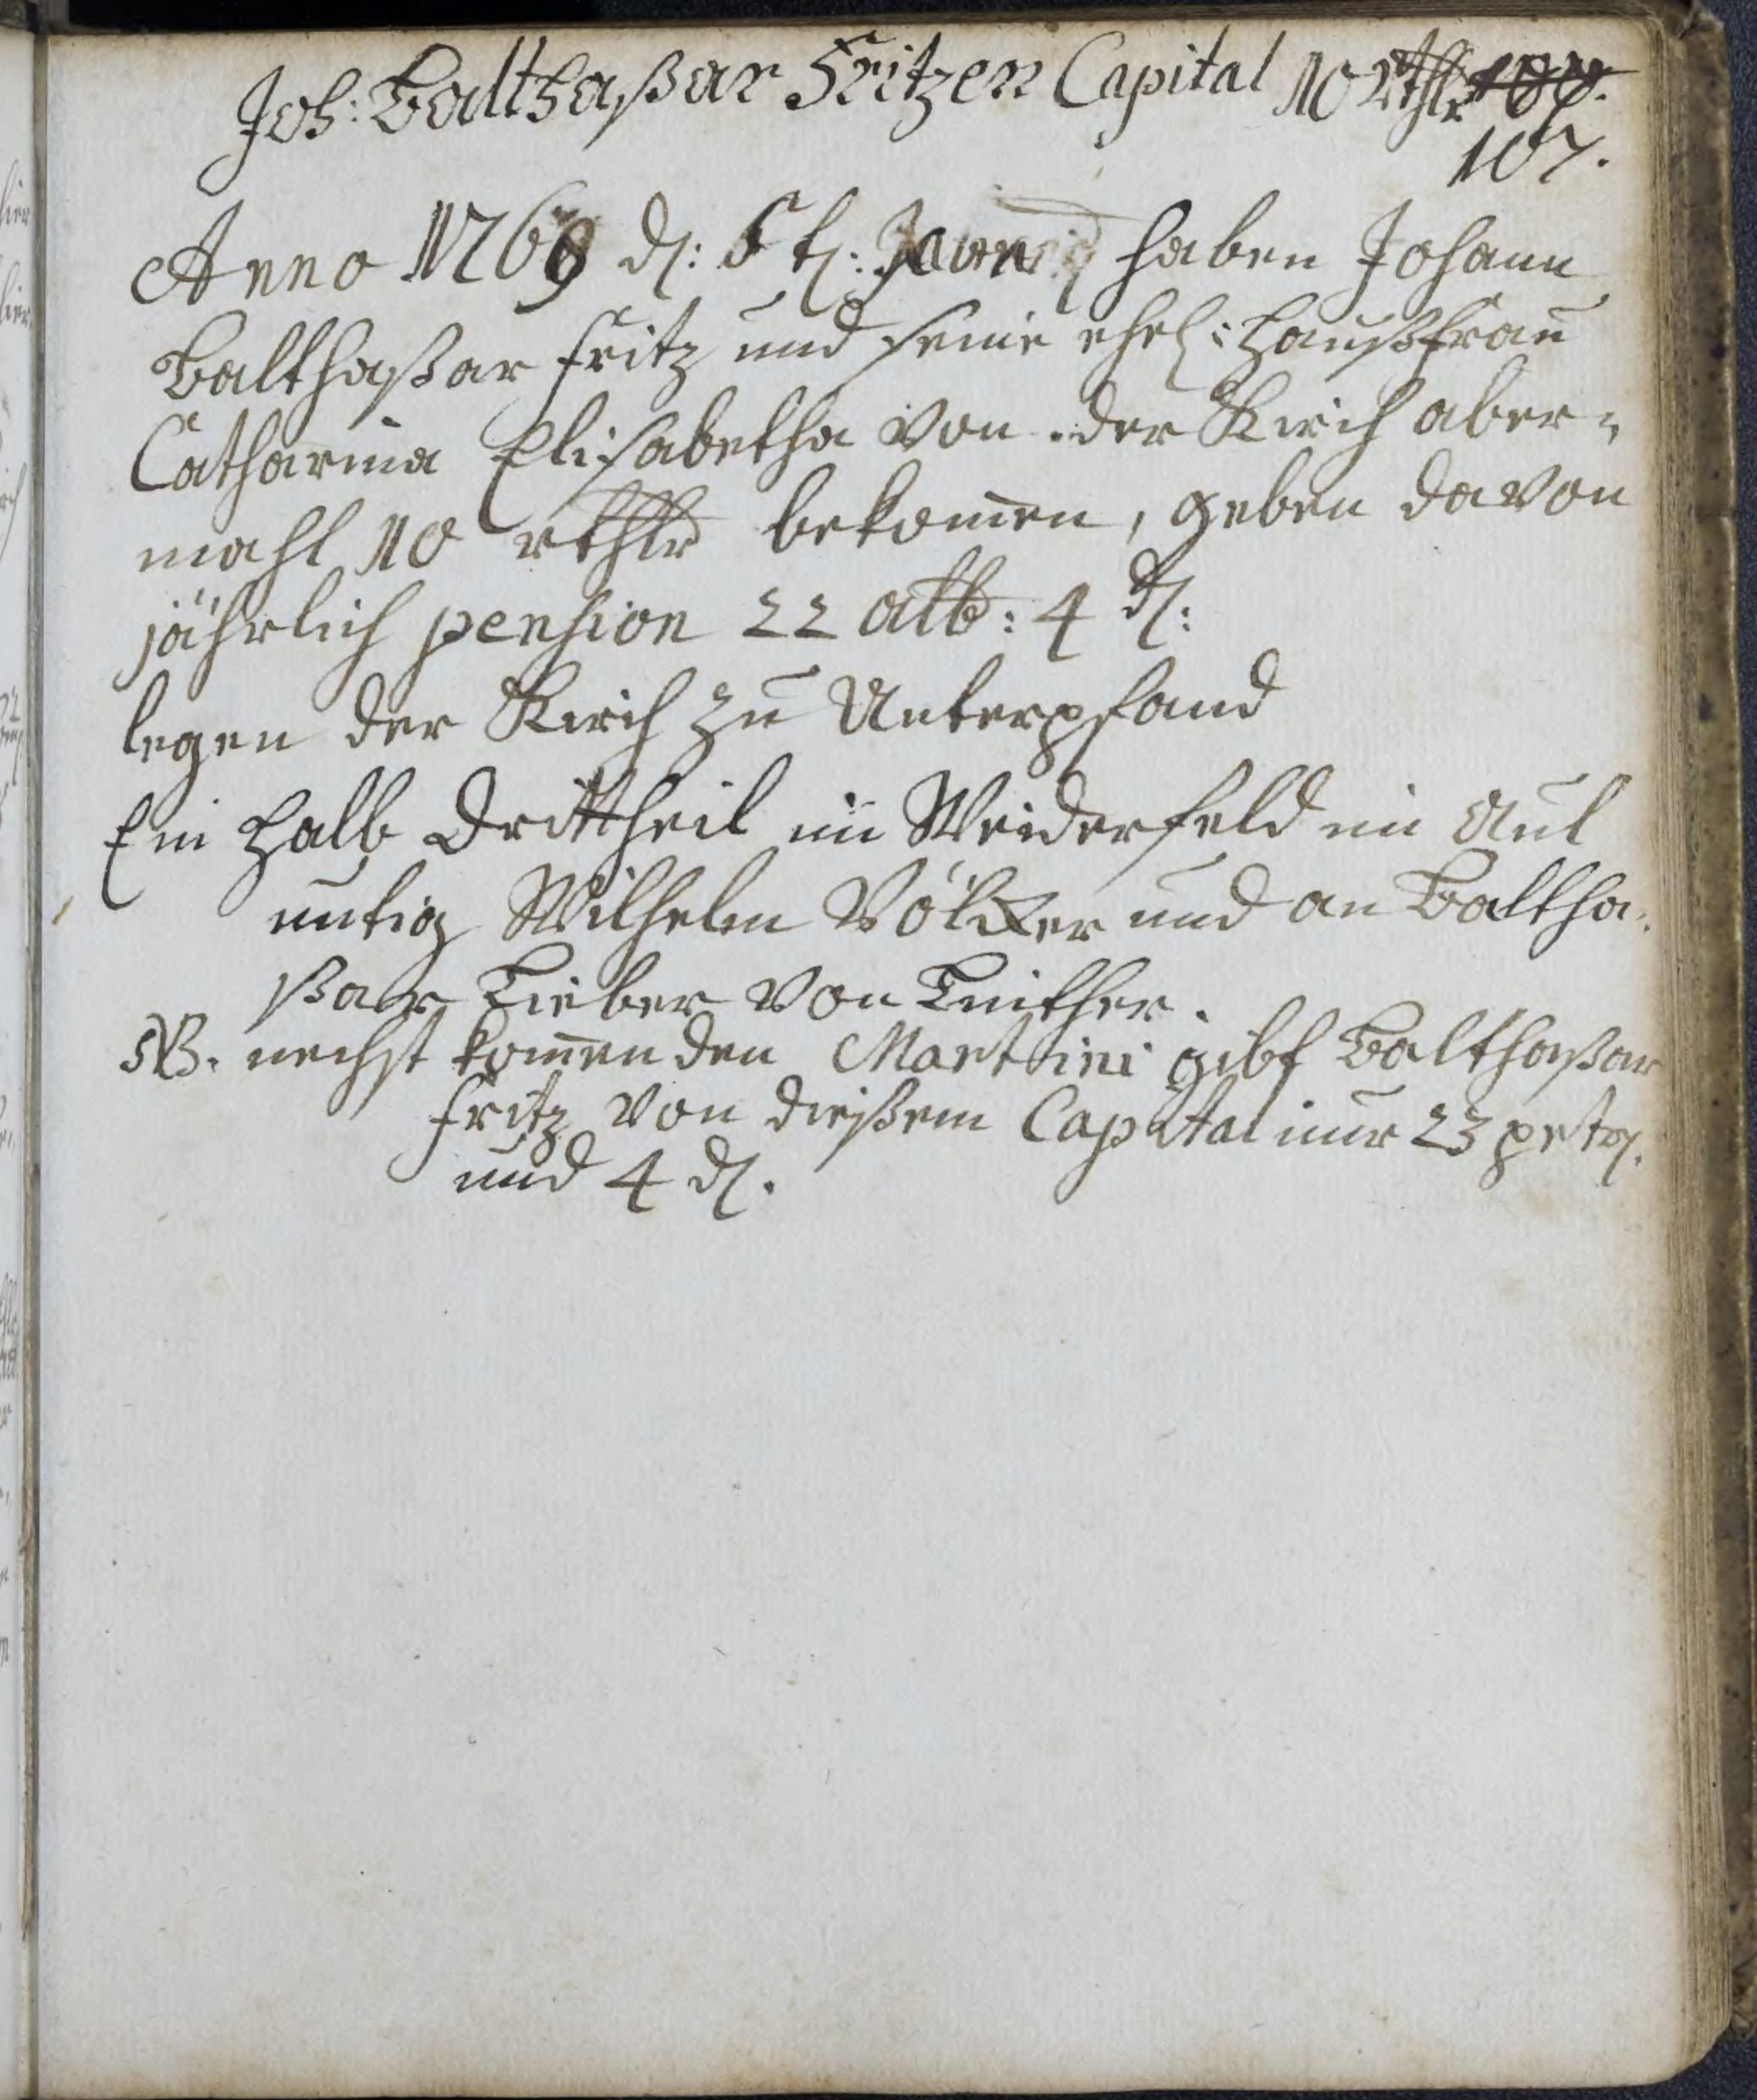 Joh: Balthaßar Fritzen Capital 10 Rthlr
107.
Anno 1769 d: 5t: haben Johann
Balthaßar Fritz und seine ehel: Haußfrau
Catharina Elisabetha von der Kirch aber=
mahl 10 rthlr bekom̅en, geben davon
jährlich pension 22 alb: 4 d:
legen der Kirch zu Unterpfand
Ein halb Drittheil im Weiderfeld im Aul
untig Wilhelm Völcker und an Baltha=
ßar Lieber von
NB. nechst kom̅enden Martini gibt Balthaßar
Fritz von dießem Capital nur 23 petr.
und 4 d.